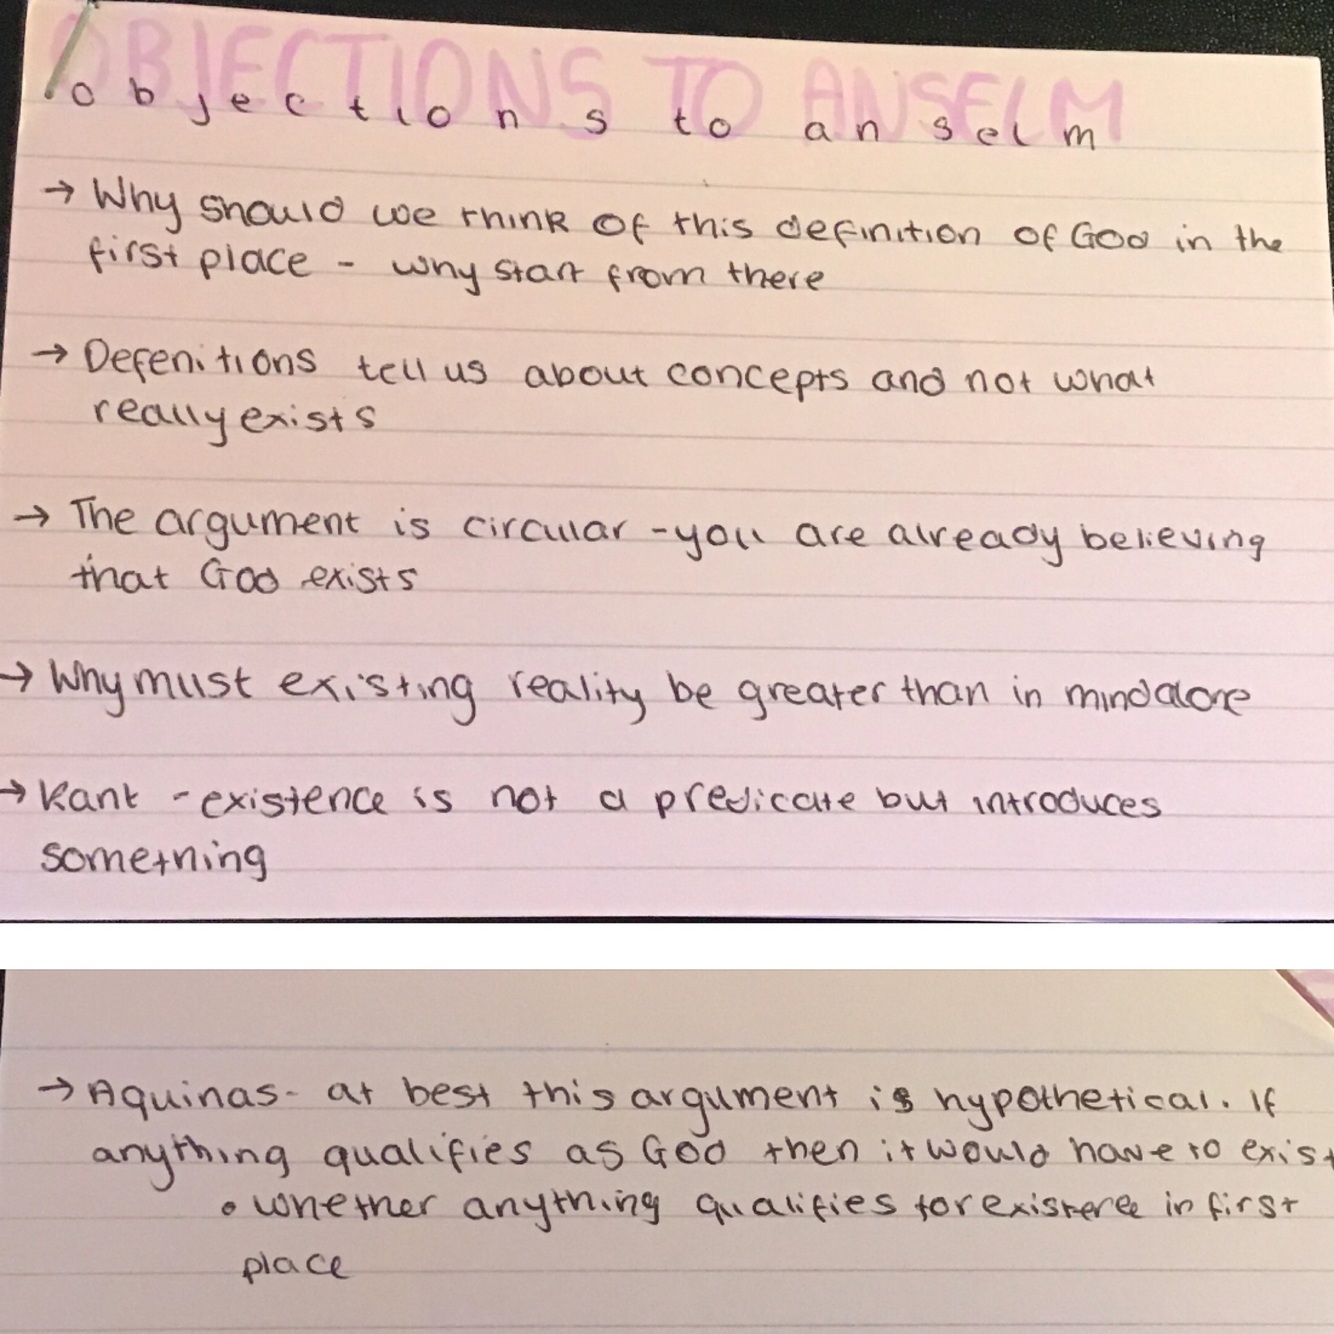 OBJECTIONS TO ANSELM
objections to anselm
→ Why should we think of this definition of God in the
first place - why start from there
→ Defenitions tell us about concepts and not what
really exists
→ The argument is circular - you are already believing
that God exists
→ Why must existing reality be greater than in mind alone
→ Kant - existence is not a predicate but introduces
something
→ Aquinas - at best this argument is hypothetical. If
anything qualifies as God then it would have to exist
• whether anything qualifies for existence in first
place